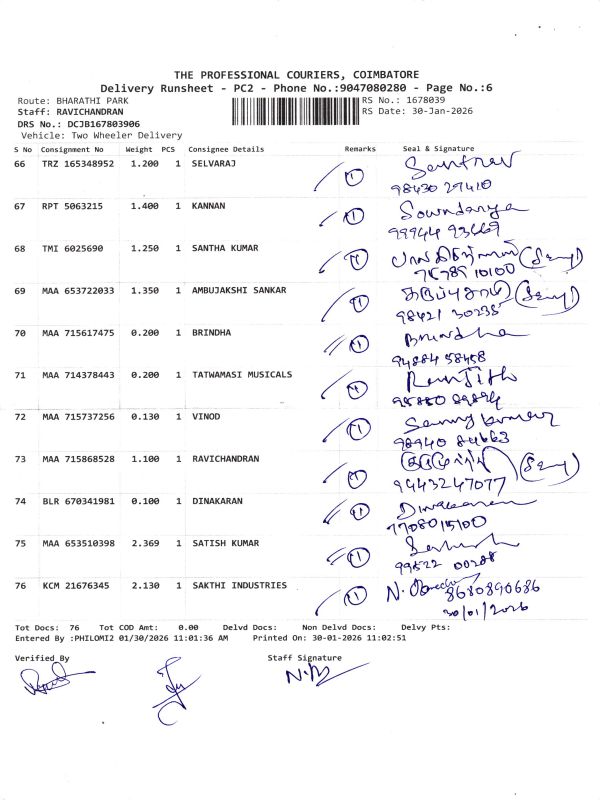 THE PROFESSIONAL COURIERS, COIMBATORE
Delivery Runsheet - PC2 - Phone No.:9047080280 - Page No.:6
Route: BHARATHI PARK RS No.: 1678039
Staff: RAVICHANDRAN RS Date: 30-Jan-2026
DRS No.: DCJB167803906
Vehicle: Two Wheeler Delivery
S No Consignment No Weight PCS Consignee Details Remarks Seal & Signature
66 TRZ 165348952 1.200 1 SELVARAJ
98430 27410
67 RPT 5063215 1.400 1 KANNAN Soundarya
99944 93669
68 TMI 6025690 1.250 1 SANTHA KUMAR
75789 10100
69 MAA 653722033 1.350 1 AMBUJAKSHI SANKAR
98421 30235
70 MAA 715617475 0.200 1 BRINDHA Brindha
94884 58458
71 MAA 714378443 0.200 1 TATWAMASI MUSICALS Renjith
72 MAA 715737256 0.130 1 VINOD
98940 84663
73 MAA 715868528 1.100 1 RAVICHANDRAN
9443247077
74 BLR 670341981 0.100 1 DINAKARAN Dinakaran
7708015100
75 MAA 653510398 2.369 1 SATISH KUMAR
99522 00288
76 KCM 21676345 2.130 1 SAKTHI INDUSTRIES
8680890686
30/01/2026
Tot Docs: 76 Tot COD Amt: 0.00 Delvd Docs: Non Delvd Docs: Delvy Pts:
Entered By :PHILOMI2 01/30/2026 11:01:36 AM Printed On: 30-01-2026 11:02:51
Verified By Staff Signature